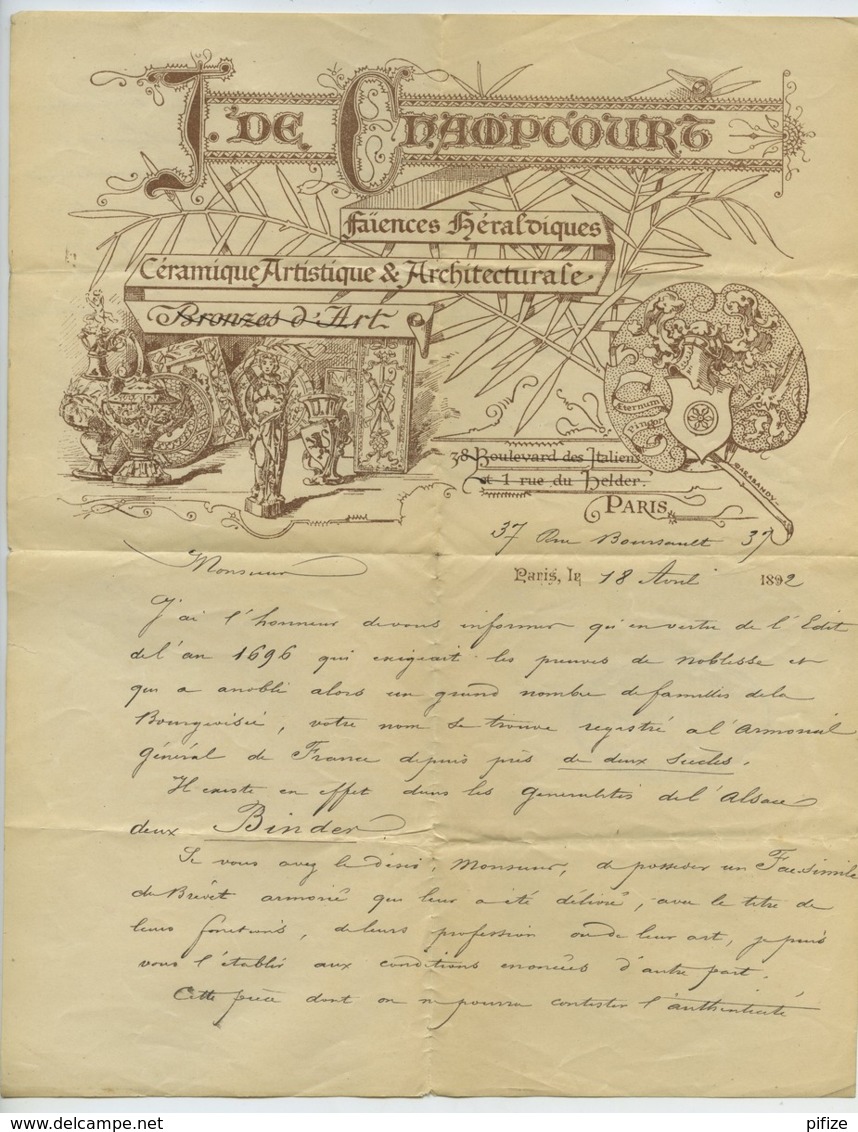 J. DE CHAMPCOURT
Faïences Héraldiques
Céramique Artistique & Architecturale
Bronzes d'Art
Æternum
38 Boulevard des Italiens
et 1 rue du Helder.
PARIS
37 Rue Boursault 37
Monsieur
Paris, le 18 Avril 1892
J'ai l'honneur de vous informer qu'en vertu de l'Edit
de l'an 1696 qui exigeait les preuves de noblesse et
qui a anobli alors un grand nombre de familles de la
Bourgeoisie, votre nom se trouve registré a l'armorial
général de France depuis près de deux siècles.
Il existe en effet dans les généralités de l'Alsace
deux Binder
Si vous avez le désir, Monsieur, de posséder un Fac-simile
du Brévet armorié qui leur a été délivré, avec le titre de
leurs fonctions, de leurs profession ou de leur art, je puis
vous l'établir aux conditions enoncées d'autre part.
Cette pièce dont on ne pourra contester l'authenticité
pifize